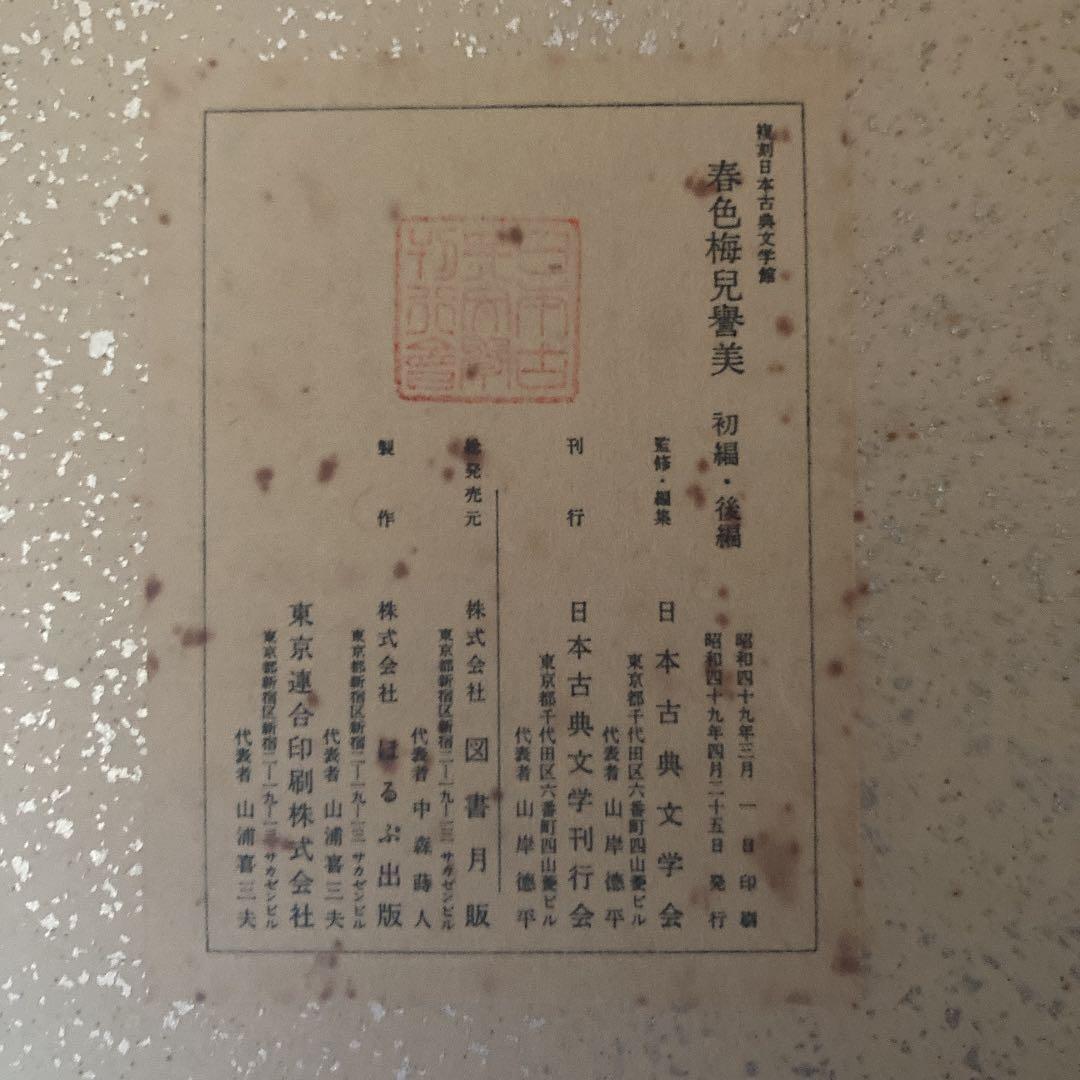 複刻日本古典文学館
春色梅兒譽美 初編・後編
昭和四十九年三月 一 日 印 刷
昭和四十九年四月二十五日 発 行
監修・編集 日本古典文学会
東京都千代田区六番町四山菱ビル
代表者 山岸德平
刊 行 日本古典文学刊行会
東京都千代田区六番町四山菱ビル
代表者 山岸德平
総発売元 株式会社 図書月販
東京都新宿区新宿二ー一九ー一三 サカゼンビル
代表者 中森蒔人
製 作 株式会社 ほるぷ出版
東京都新宿区新宿二ー一九ー一三 サカゼンビル
代表者 山浦喜三夫
東京連合印刷株式会社
東京都新宿区新宿二ー一九ー一三 サカゼンビル
代表者 山浦喜三夫
日本古
典文學
刊行會